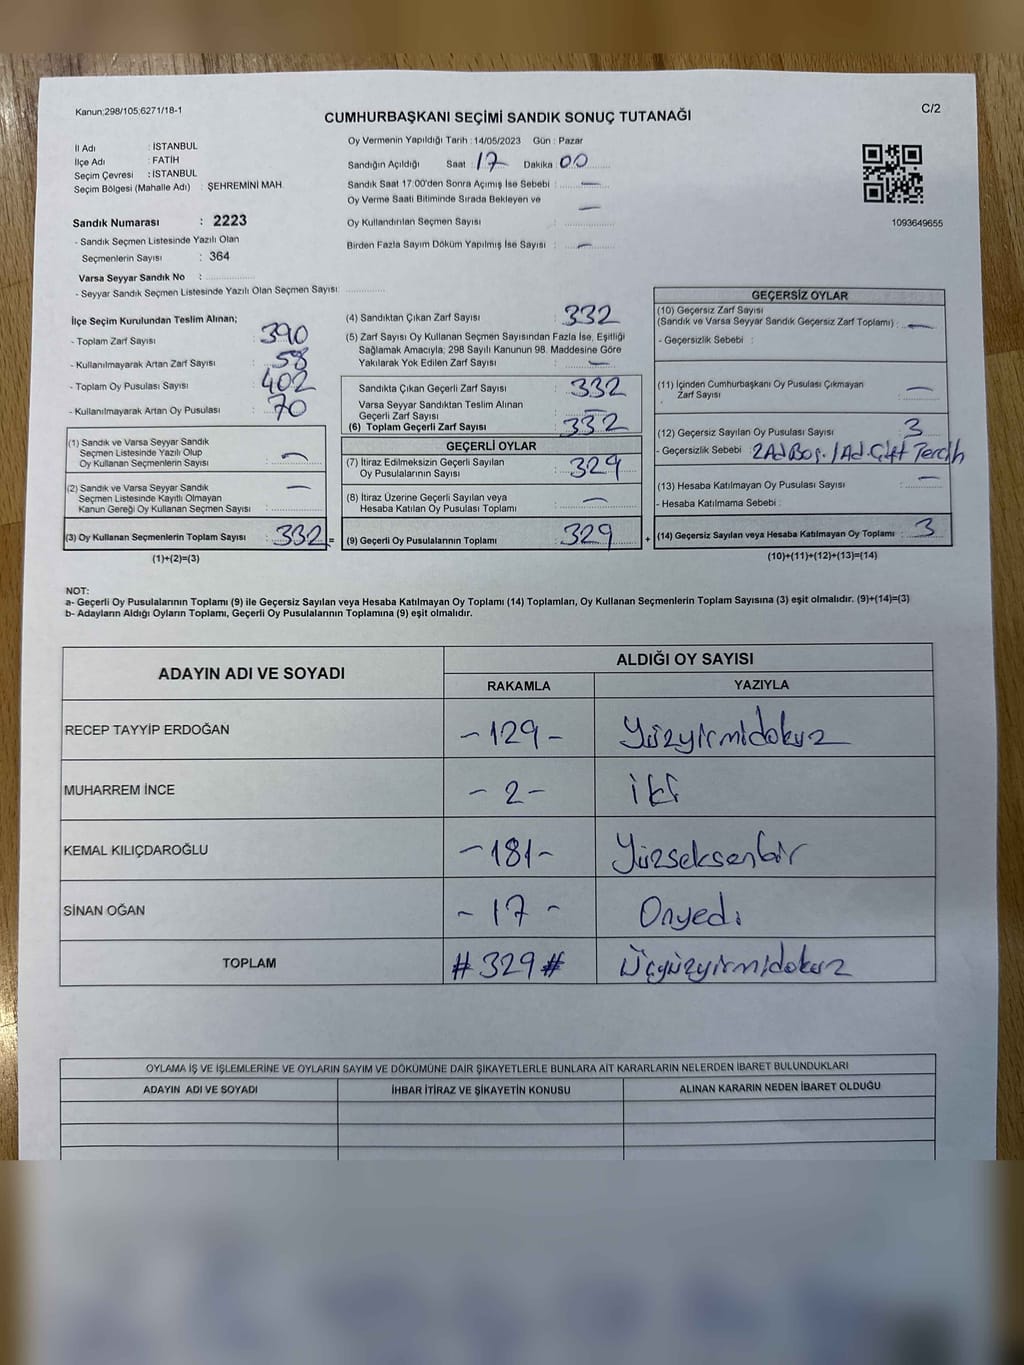 Kanun;298/105;6271/18-1
C/2
CUMHURBAŞKANI SEÇİMİ SANDIK SONUÇ TUTANAĞI
İl Adı : İSTANBUL
İlçe Adı : FATİH
Seçim Çevresi : İSTANBUL
Seçim Bölgesi (Mahalle Adı) : ŞEHREMİNİ MAH.
Sandık Numarası : 2223
- Sandık Seçmen Listesinde Yazılı Olan
Seçmenlerin Sayısı : 364
Varsa Seyyar Sandık No :
- Seyyar Sandık Seçmen Listesinde Yazılı Olan Seçmen Sayısı:
Oy Vermenin Yapıldığı Tarih : 14/05/2023 Gün : Pazar
Sandığın Açıldığı Saat : 17 Dakika : 00
Sandık Saat 17:00'den Sonra Açımış İse Sebebi : —
Oy Verme Saati Bitiminde Sırada Bekleyen ve
Oy Kullandırılan Seçmen Sayısı : —
Birden Fazla Sayım Döküm Yapılmış İse Sayısı : —
1093649655
İlçe Seçim Kurulundan Teslim Alınan;
- Toplam Zarf Sayısı : 390
- Kullanılmayarak Artan Zarf Sayısı : 58
- Toplam Oy Pusulası Sayısı : 402
- Kullanılmayarak Artan Oy Pusulası : 70
(1) Sandık ve Varsa Seyyar Sandık
Seçmen Listesinde Yazılı Olup
Oy Kullanan Seçmenlerin Sayısı : —
(2) Sandık ve Varsa Seyyar Sandık
Seçmen Listesinde Kayıtlı Olmayan
Kanun Gereği Oy Kullanan Seçmen Sayısı : —
(3) Oy Kullanan Seçmenlerin Toplam Sayısı : 332 =
(1)+(2)=(3)
(4) Sandıktan Çıkan Zarf Sayısı : 332
(5) Zarf Sayısı Oy Kullanan Seçmen Sayısından Fazla İse, Eşitliği
Sağlamak Amacıyla; 298 Sayılı Kanunun 98. Maddesine Göre
Yakılarak Yok Edilen Zarf Sayısı : —
Sandıkta Çıkan Geçerli Zarf Sayısı : 332
Varsa Seyyar Sandıktan Teslim Alınan
Geçerli Zarf Sayısı : —
(6) Toplam Geçerli Zarf Sayısı : 332
GEÇERLİ OYLAR
(7) İtiraz Edilmeksizin Geçerli Sayılan
Oy Pusulalarının Sayısı : 329
(8) İtiraz Üzerine Geçerli Sayılan veya
Hesaba Katılan Oy Pusulası Toplamı : —
(9) Geçerli Oy Pusulalarının Toplamı : 329 +
GEÇERSİZ OYLAR
(10) Geçersiz Zarf Sayısı
(Sandık ve Varsa Seyyar Sandık Geçersiz Zarf Toplamı) : —
- Geçersizlik Sebebi :
(11) İçinden Cumhurbaşkanı Oy Pusulası Çıkmayan
Zarf Sayısı : —
(12) Geçersiz Sayılan Oy Pusulası Sayısı : 3
- Geçersizlik Sebebi : 2 Ad Boş. 1 Ad. Çift Tercih
(13) Hesaba Katılmayan Oy Pusulası Sayısı : —
- Hesaba Katılmama Sebebi :
(14) Geçersiz Sayılan veya Hesaba Katılmayan Oy Toplamı : 3
(10)+(11)+(12)+(13)=(14)
NOT:
a- Geçerli Oy Pusulalarının Toplamı (9) ile Geçersiz Sayılan veya Hesaba Katılmayan Oy Toplamı (14) Toplamları, Oy Kullanan Seçmenlerin Toplam Sayısına (3) eşit olmalıdır. (9)+(14)=(3)
b- Adayların Aldığı Oyların Toplamı, Geçerli Oy Pusulalarının Toplamına (9) eşit olmalıdır.
ADAYIN ADI VE SOYADI
ALDIĞI OY SAYISI
RAKAMLA YAZIYLA
RECEP TAYYİP ERDOĞAN -129- Yüzyirmidokuz
MUHARREM İNCE -2- iki
KEMAL KILIÇDAROĞLU -181- Yüzseksenbir
SİNAN OĞAN -17- Onyedi
TOPLAM #329# Üçyüzyirmidokuz
OYLAMA İŞ VE İŞLEMLERİNE VE OYLARIN SAYIM VE DÖKÜMÜNE DAİR ŞİKAYETLERLE BUNLARA AİT KARARLARIN NELERDEN İBARET BULUNDUKLARI
ADAYIN ADI VE SOYADI İHBAR İTİRAZ VE ŞİKAYETİN KONUSU ALINAN KARARIN NEDEN İBARET OLDUĞU